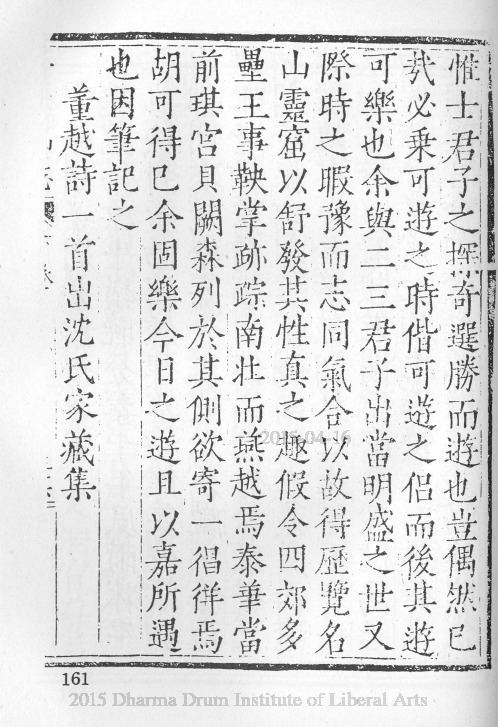 惟士君子之探奇選勝而遊也豈偶然已
㢤必乗可遊之時偕可遊之侣而後其遊
可樂也余與二三君子出當明盛之世又
際時之暇豫而志同氣合以故得歷覽名
山靈窟以舒發其性真之趣假令四郊多
壘王事鞅掌跡踪南北而燕越焉泰華當
前琪宫貝闕森列於其側欲寄一徜徉焉
胡可得已余固樂今日之遊且以嘉所遇
也因筆記之
董越詩一首出沈氏家藏集
2015-04-16
161
2015 Dharma Drum Institute of Liberal Arts